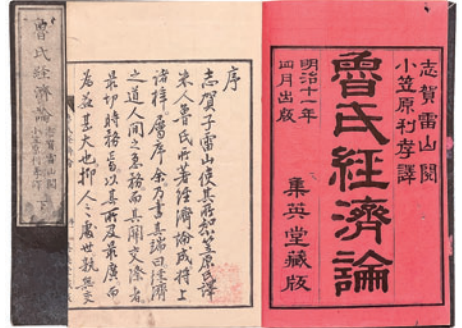 志賀雷山閲
小笠原利孝譯
魯氏經濟論
明治十一年
四月出版
集英堂藏版
序
志賀子雷山使其所知小笠原氏譯
米人魯氏所著經濟論成将上
諸梓屬序余乃書其端曰經濟
之道人間之急務而其関交際者
最切時務 以其所及最廣而
為益甚大也抑人之處世孰無交
魯氏經濟論
志賀雷山閲
小笠原利孝訳
下